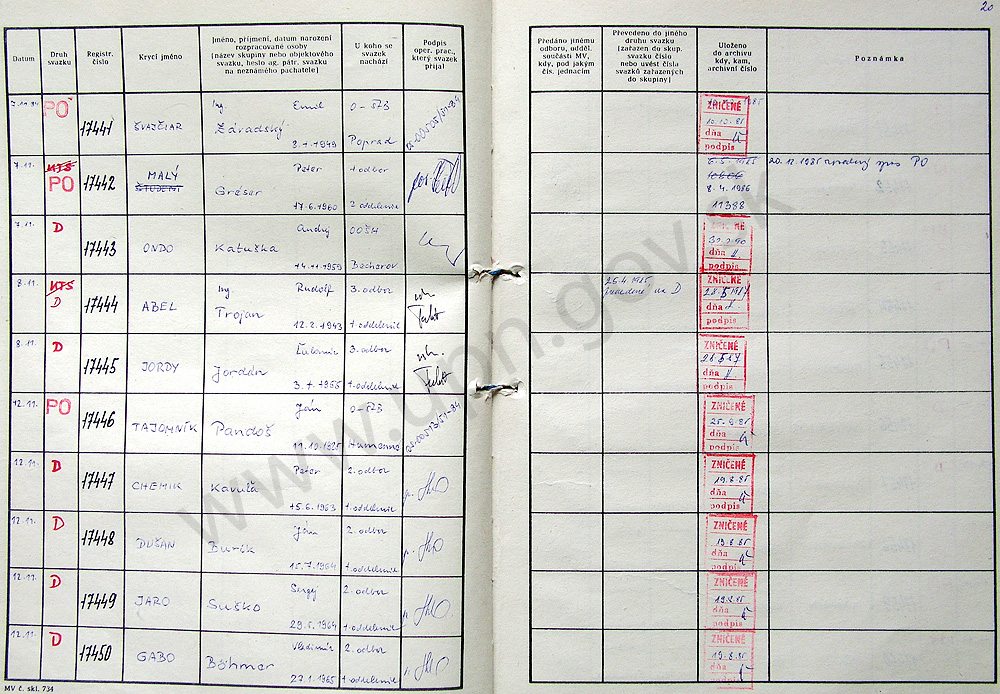 20
Datum
Druh
svazku
Registr.
číslo
Krycí jméno
Jméno, příjmení, datum narození
rozpracované osoby
(název skupiny nebo objektového
svazku, heslo ag. pátr. svazku
na neznámého pachatele)
U koho se
svazek
nachází
Podpis
oper. prac.,
který svazek
přijal
Předáno jinému
odboru, odděl.
součásti MV,
kdy, pod jakým
čís. jednacím
Převedeno do jiného
druhu svazku
(zařazen do skup.
svazku číslo
nebo uvést čísla
svazků zařazených
do skupiny)
Uloženo
do archivu
kdy, kam,
archivní číslo
Poznámka
7.11.84 PO 17441 ŠVAJČIAR Ing. Emil
Závadský
8.1.1949 Poprad
ZNIČENÉ
10.10.85
dňa
podpis
7.11. NTS
PO 17442 MALÝ
ŠTUDENT
Peter
Gréser
17.6.1960
1 odbor
2 oddelenie
8.4.1986
11388
20.12.1985 PO
7.11. D 17443 ONDO Andrej
Katuška
14.11.1959 Becherov
ZNIČENÉ
dňa
podpis
8.11. NTS
D 17444 ABEL Ing. Rudolf
Trojan
12.2.1943
3. odbor
1 oddelenie
25.4.1985
na D
ZNIČENÉ
dňa
podpis
8.11. D 17445 JORDY Ľubomír
Jordán
3. odbor
1. oddelenie
ZNIČENÉ
dňa
podpis
12.11. PO 17446 TAJOMNÍK Ján
Pandoš
11.10.1925 Humenné
ZNIČENÉ
25.9.85
dňa
podpis
12.11. D 17447 CHEMIK Peter
Kavuľa
15.6.1963
2. odbor
1. oddelenie
ZNIČENÉ
19.8.85
dňa
podpis
12.11. D 17448 DUŠAN Ján
Burík
15.7.1964
2. odbor
1. oddelenie
ZNIČENÉ
19.8.85
dňa
podpis
12.11. D 17449 JARO Sergej
Suško
29.5.1964
2. odbor
1. oddelenie
ZNIČENÉ
19.8.85
dňa
podpis
12.11. D 17450 GABO Vladimír
Böhmer
27.1.1965
2. odbor
1. oddelenie
ZNIČENÉ
19.8.85
dňa
podpis
MV č. skl. 734
www.upn.gov.sk